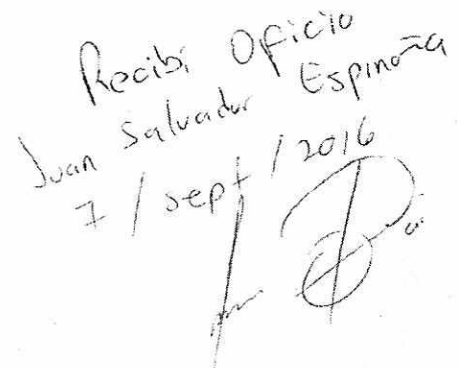 Recibi Oficio
Juan Salvador Espinoña
7 / sept / 2016